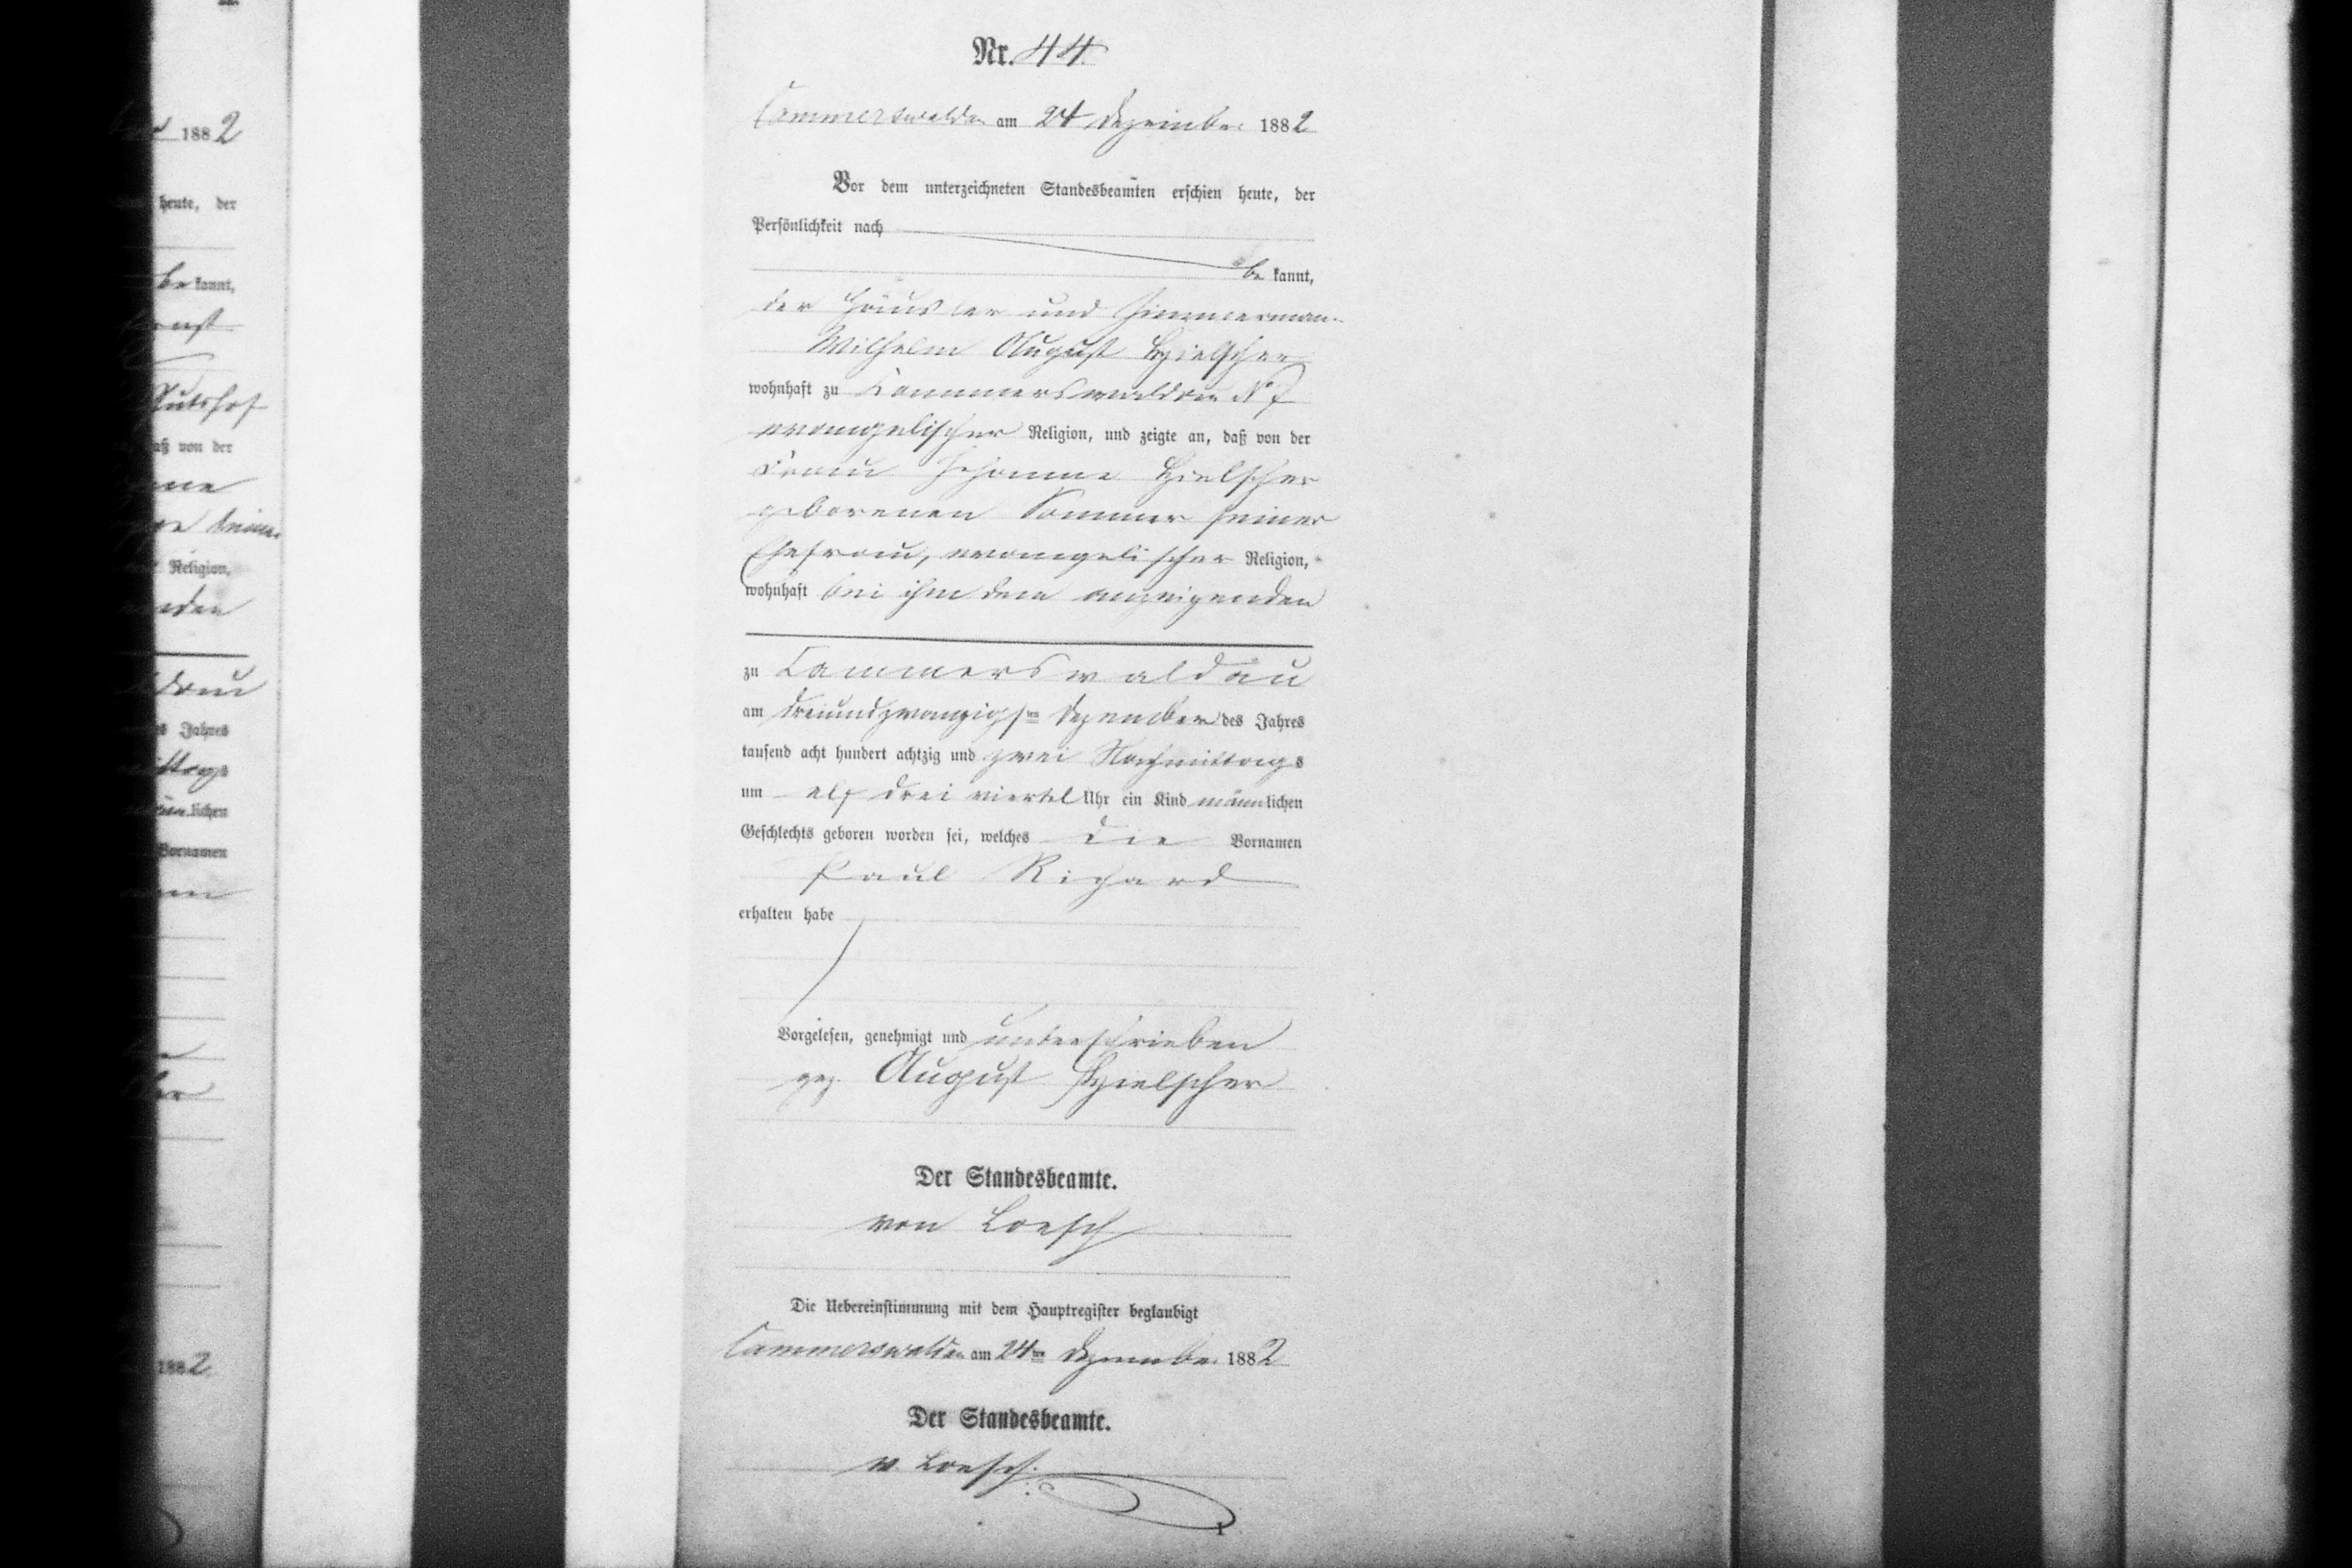 Nr. 44.
Cammerswaldau am 24 Dezember 1882
Vor dem unterzeichneten Standesbeamten erschien heute, der
Persönlichkeit nach
be kannt,
der Häusler und Zimmermann
Wilhelm August Hielscher
wohnhaft zu Kammerswaldau No 7
evangelischer Religion, und zeigte an, daß von der
Frau Johanne Hielscher
geborenen Sommer seiner
Ehefrau, evangelischer Religion,
wohnhaft bei ihm dem anzeigenden
zu Cammerswaldau
am dreiundzwanzigsten Dezember des Jahres
tausend acht hundert achtzig und zwei Nachmittags
um elf drei viertel Uhr ein Kind männlichen
Geschlechts geboren worden sei, welches die Vornamen
Paul Richard
erhalten habe
Vorgelesen, genehmigt und unterschrieben
gez. August Hielscher
Der Standesbeamte.
von Loesch
Die Uebereinstimmung mit dem Hauptregister beglaubigt
Cammerswaldau am 24ten Dezember 1882
Der Standesbeamte.
v. Loesch.
1882
heute, der
be kannt,
Gutshof
daß von der
Religion,
des Jahres
lichen
Vornamen
1882